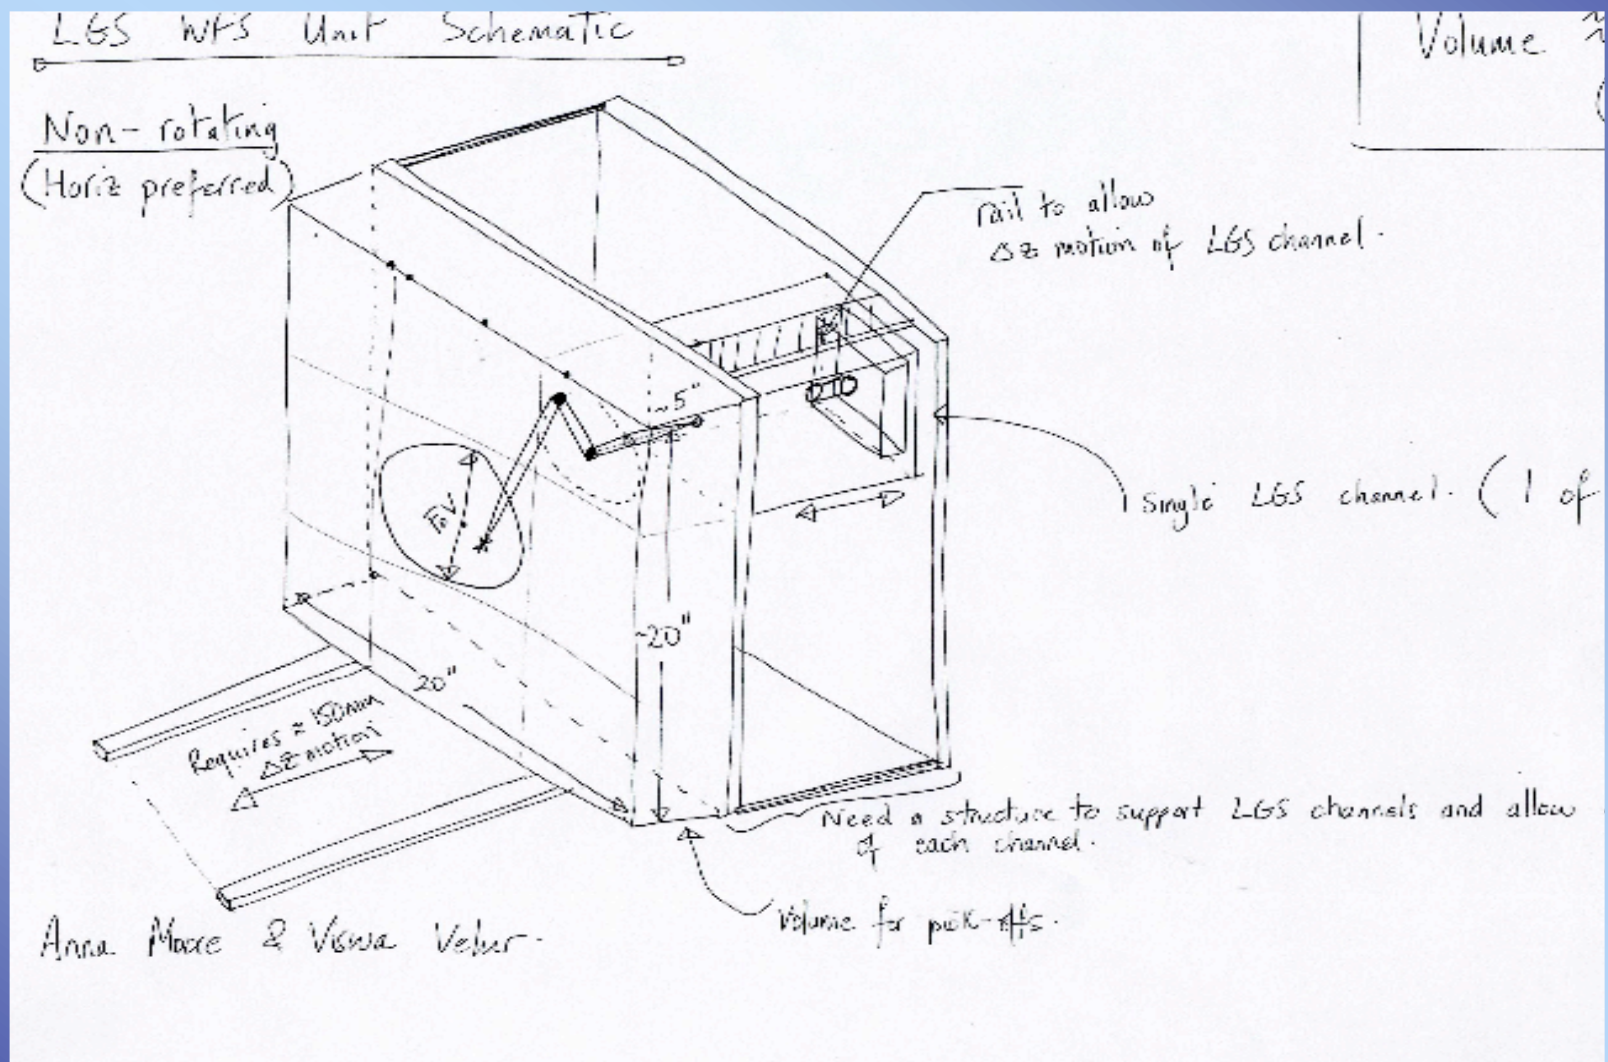 LGS WFS Unit Schematic
Volume
Non-rotating
(Horiz preferred)
rail to allow
Δz motion of LGS channel.
~5"
FoV
Single LGS channel. (1 of
~20"
20"
Requires ≈ 150mm
Δz motion
Need a structure to support LGS channels and allow
of each channel.
Volume for pick-offs.
Anna Moore & Viswa Velur.